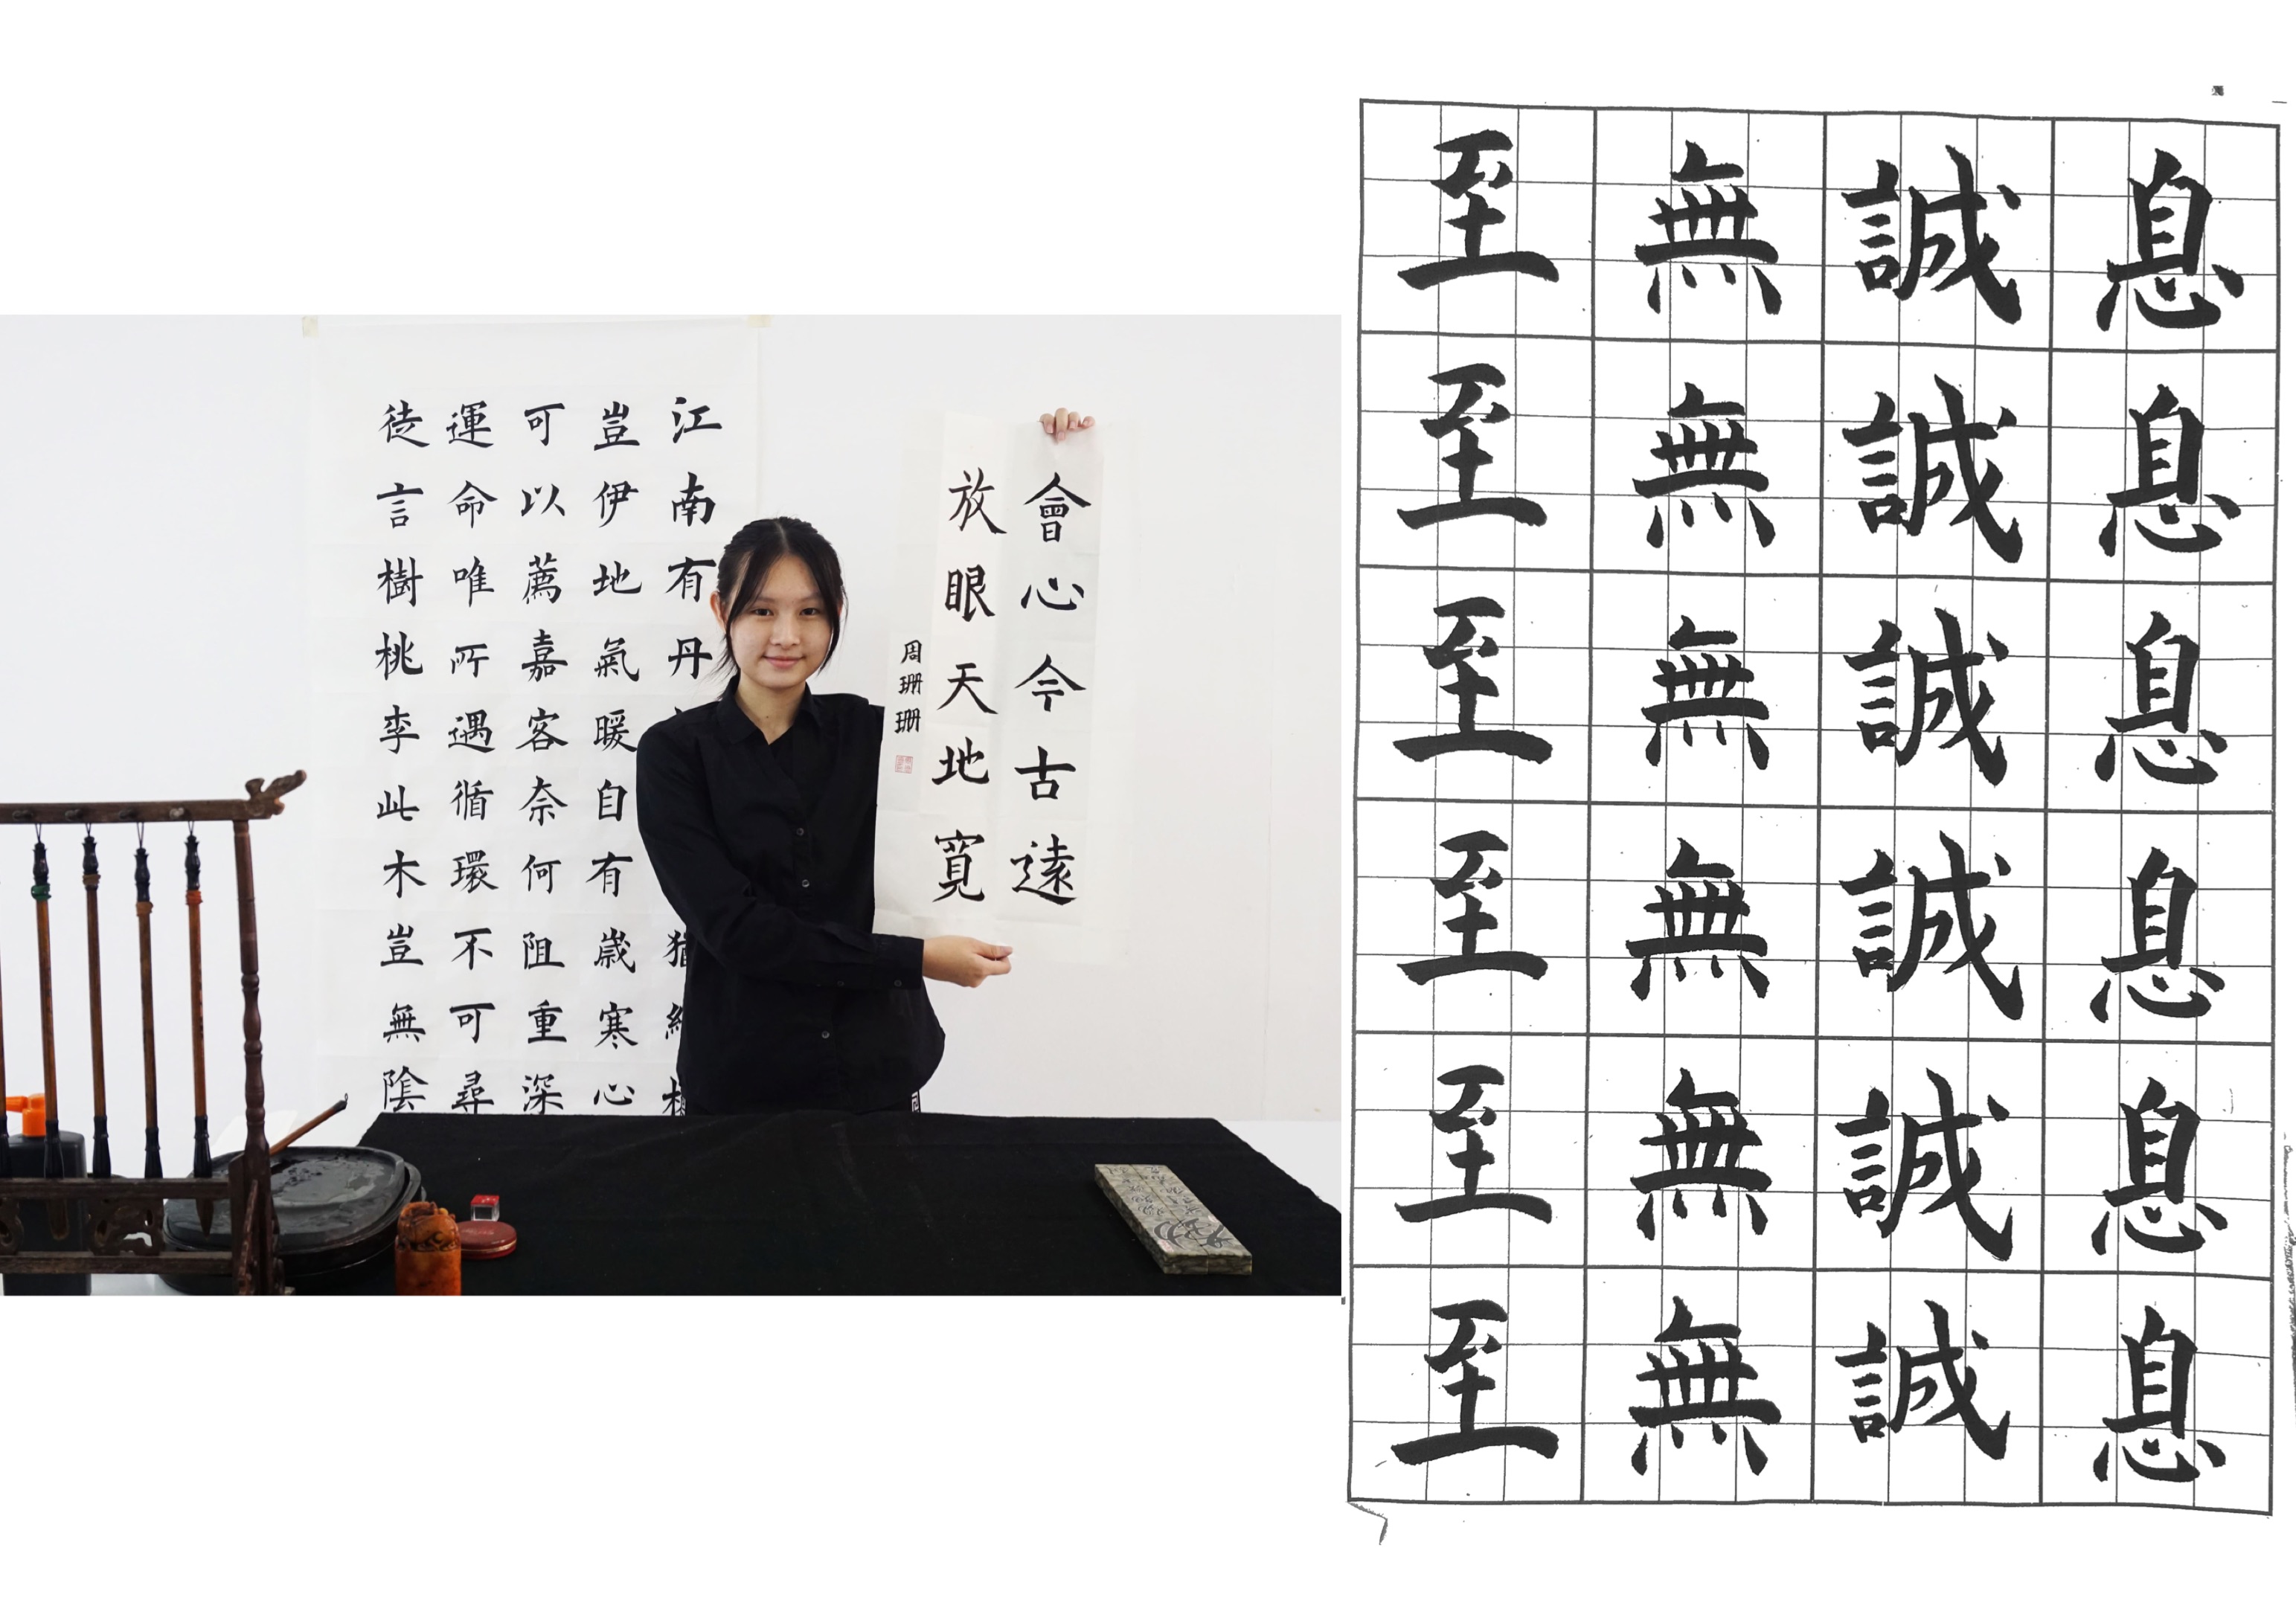 江南有丹
豈伊地氣暖自有歲寒心
可以薦嘉客奈何阻重深
運命唯所遇循環不可尋
徒言樹桃李此木豈無陰
會心今古遠
放眼天地寬
周珊珊
至無誠息
至無誠息
至無誠息
至無誠息
至無誠息
至無誠息